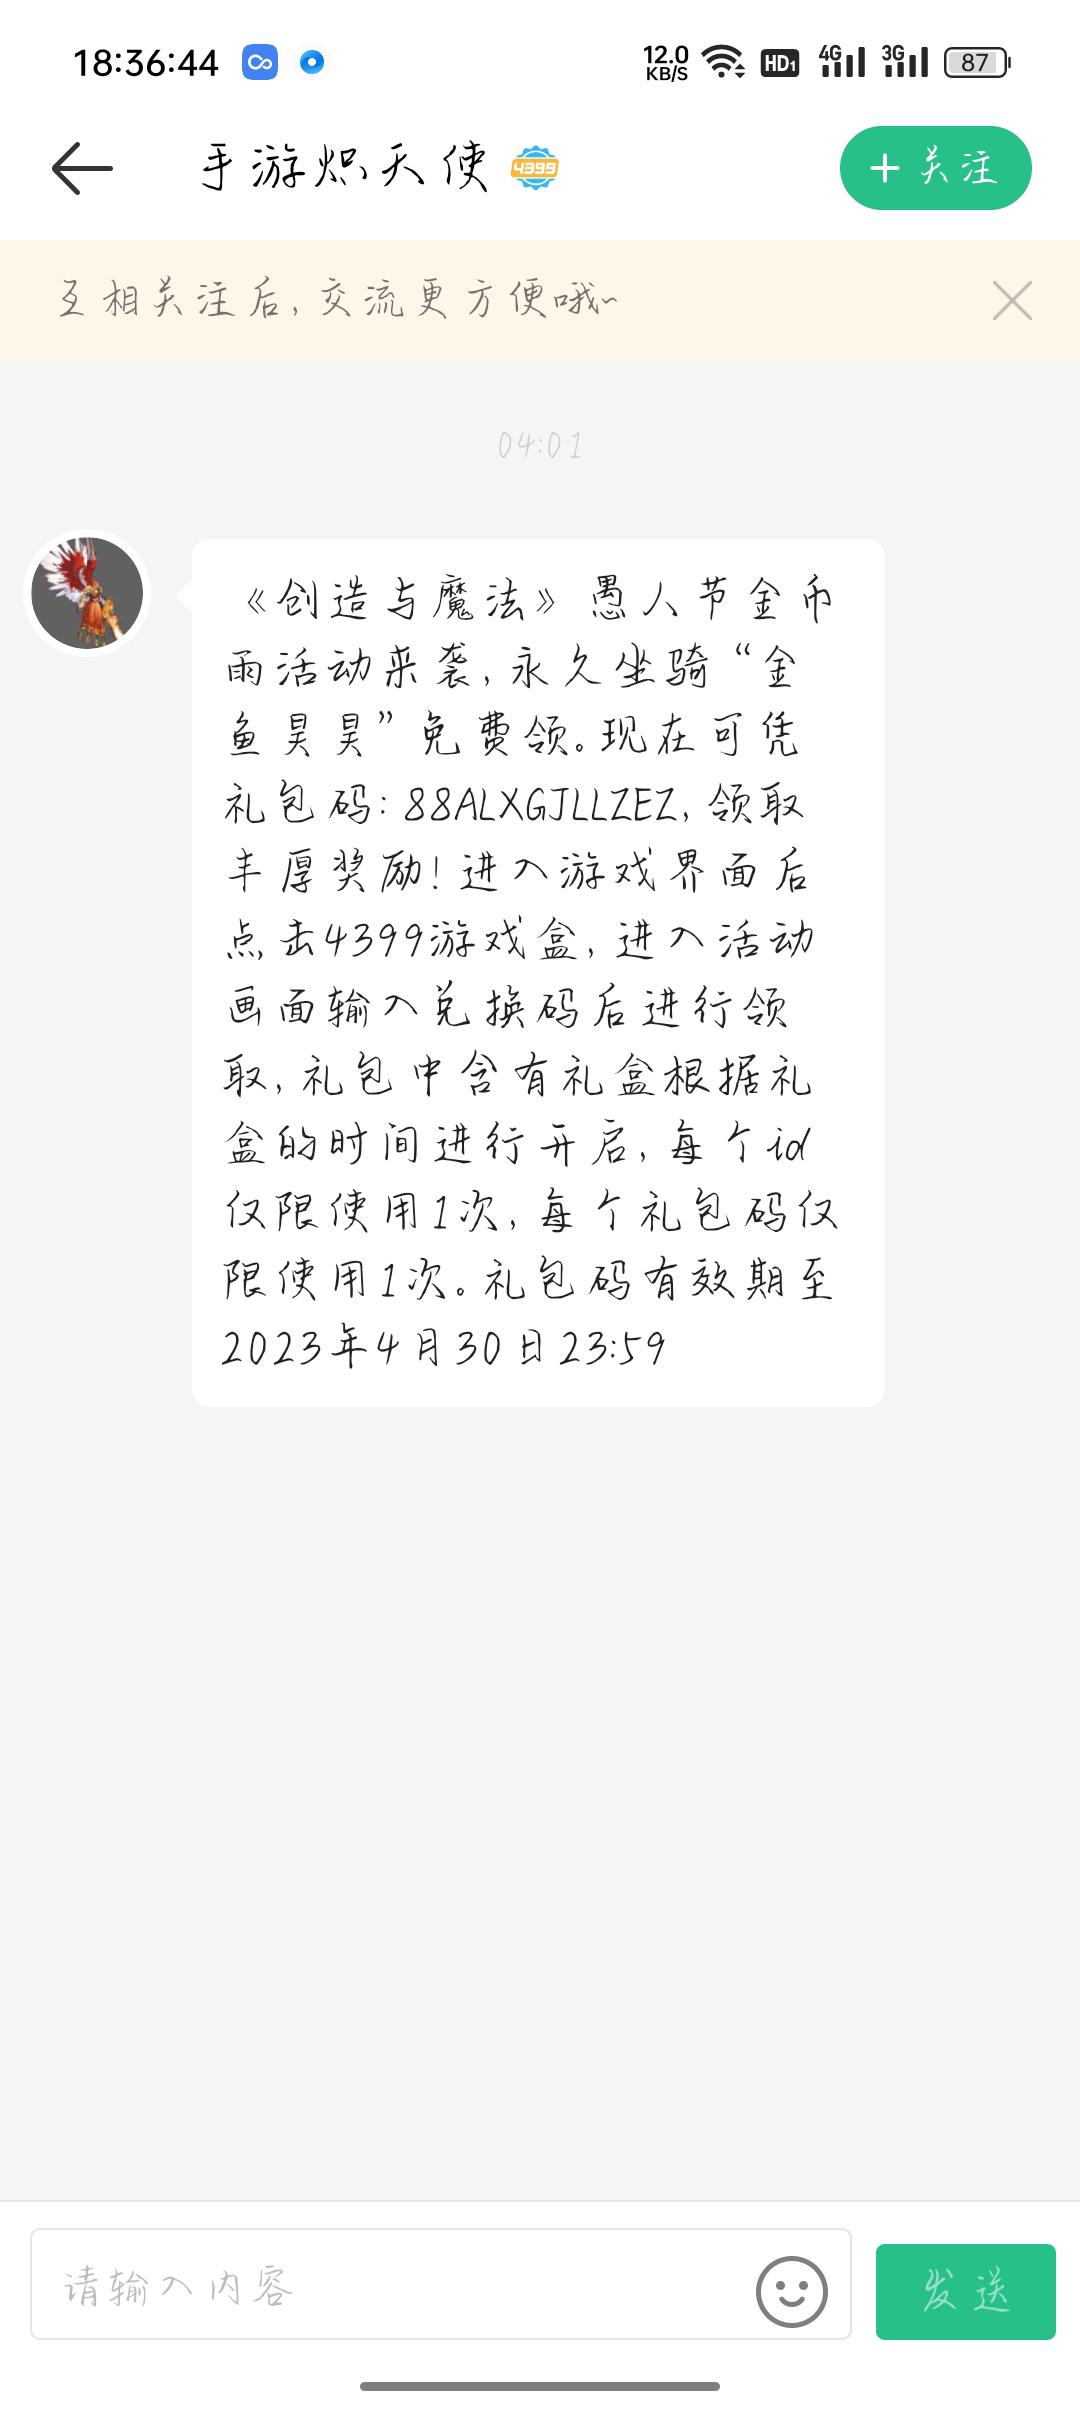 18:36:44
12.0
KB/S
HD1
4G
3G
87
手游炽天使
4399
+关注
互相关注后,交流更方便哦~
04:01
《创造与魔法》愚人节金币
雨活动来袭,永久坐骑“金
鱼昊昊”免费领。现在可凭
礼包码:88ALXGJLLZEZ,领取
丰厚奖励!进入游戏界面后
点击4399游戏盒,进入活动
画面输入兑换码后进行领
取,礼包中含有礼盒根据礼
盒的时间进行开启,每个id
仅限使用1次,每个礼包码仅
限使用1次。礼包码有效期至
2023年4月30日23:59
请输入内容
发送